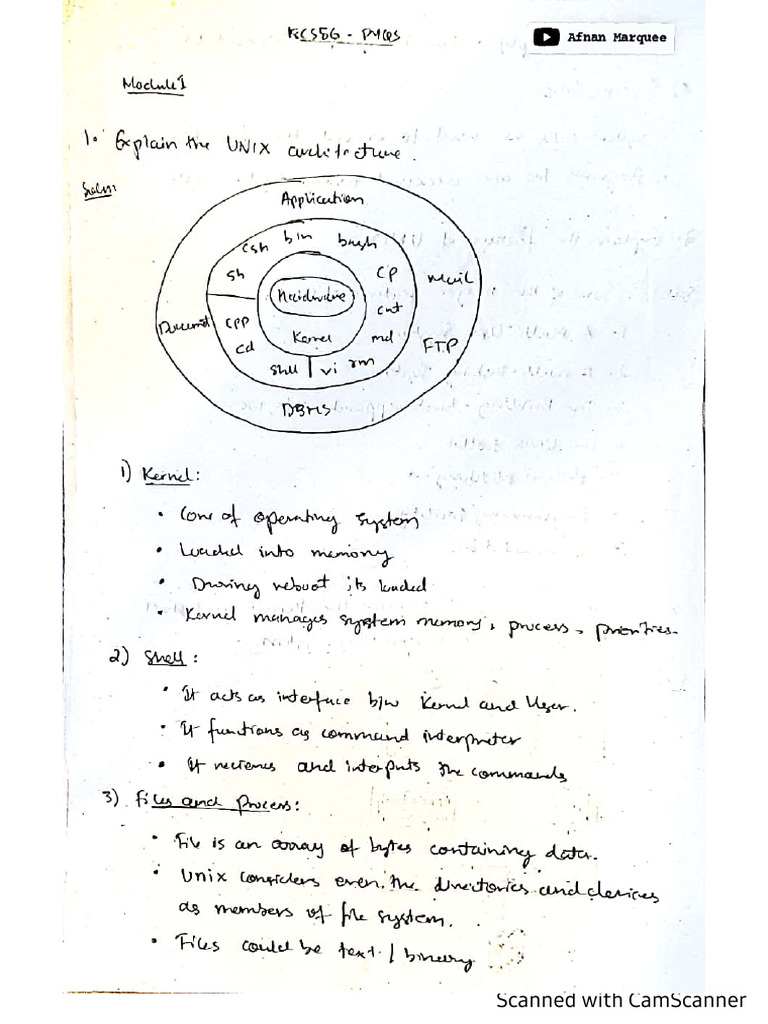 Afnan Marquee
Module 1
1. Explain the UNIX architecture.
Soln
Application
csh bin bash
sh
CP
Mail
Hardware
CPP
Kernel
cd
md
FTP
shell vi rm
DBMS
1) Kernel:
• Core of operating system
• Loaded into memory
• During reboot its loaded
• Kernel manages system memory, process, priorities.
2) Shell:
• It acts as interface b/w Kernel and User.
• It functions as command interpreter
• It recieves and interputs the commands
3) Files and Process:
• File is an array of bytes containing data.
• Unix considers even the directories and devices
as members of file system.
• Files could be text / binary
Scanned with CamScanner